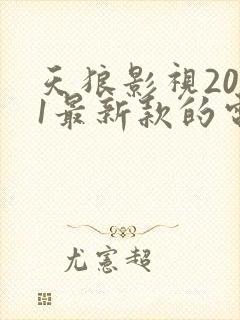 天狼影視20
1最新款的電
尤憲超